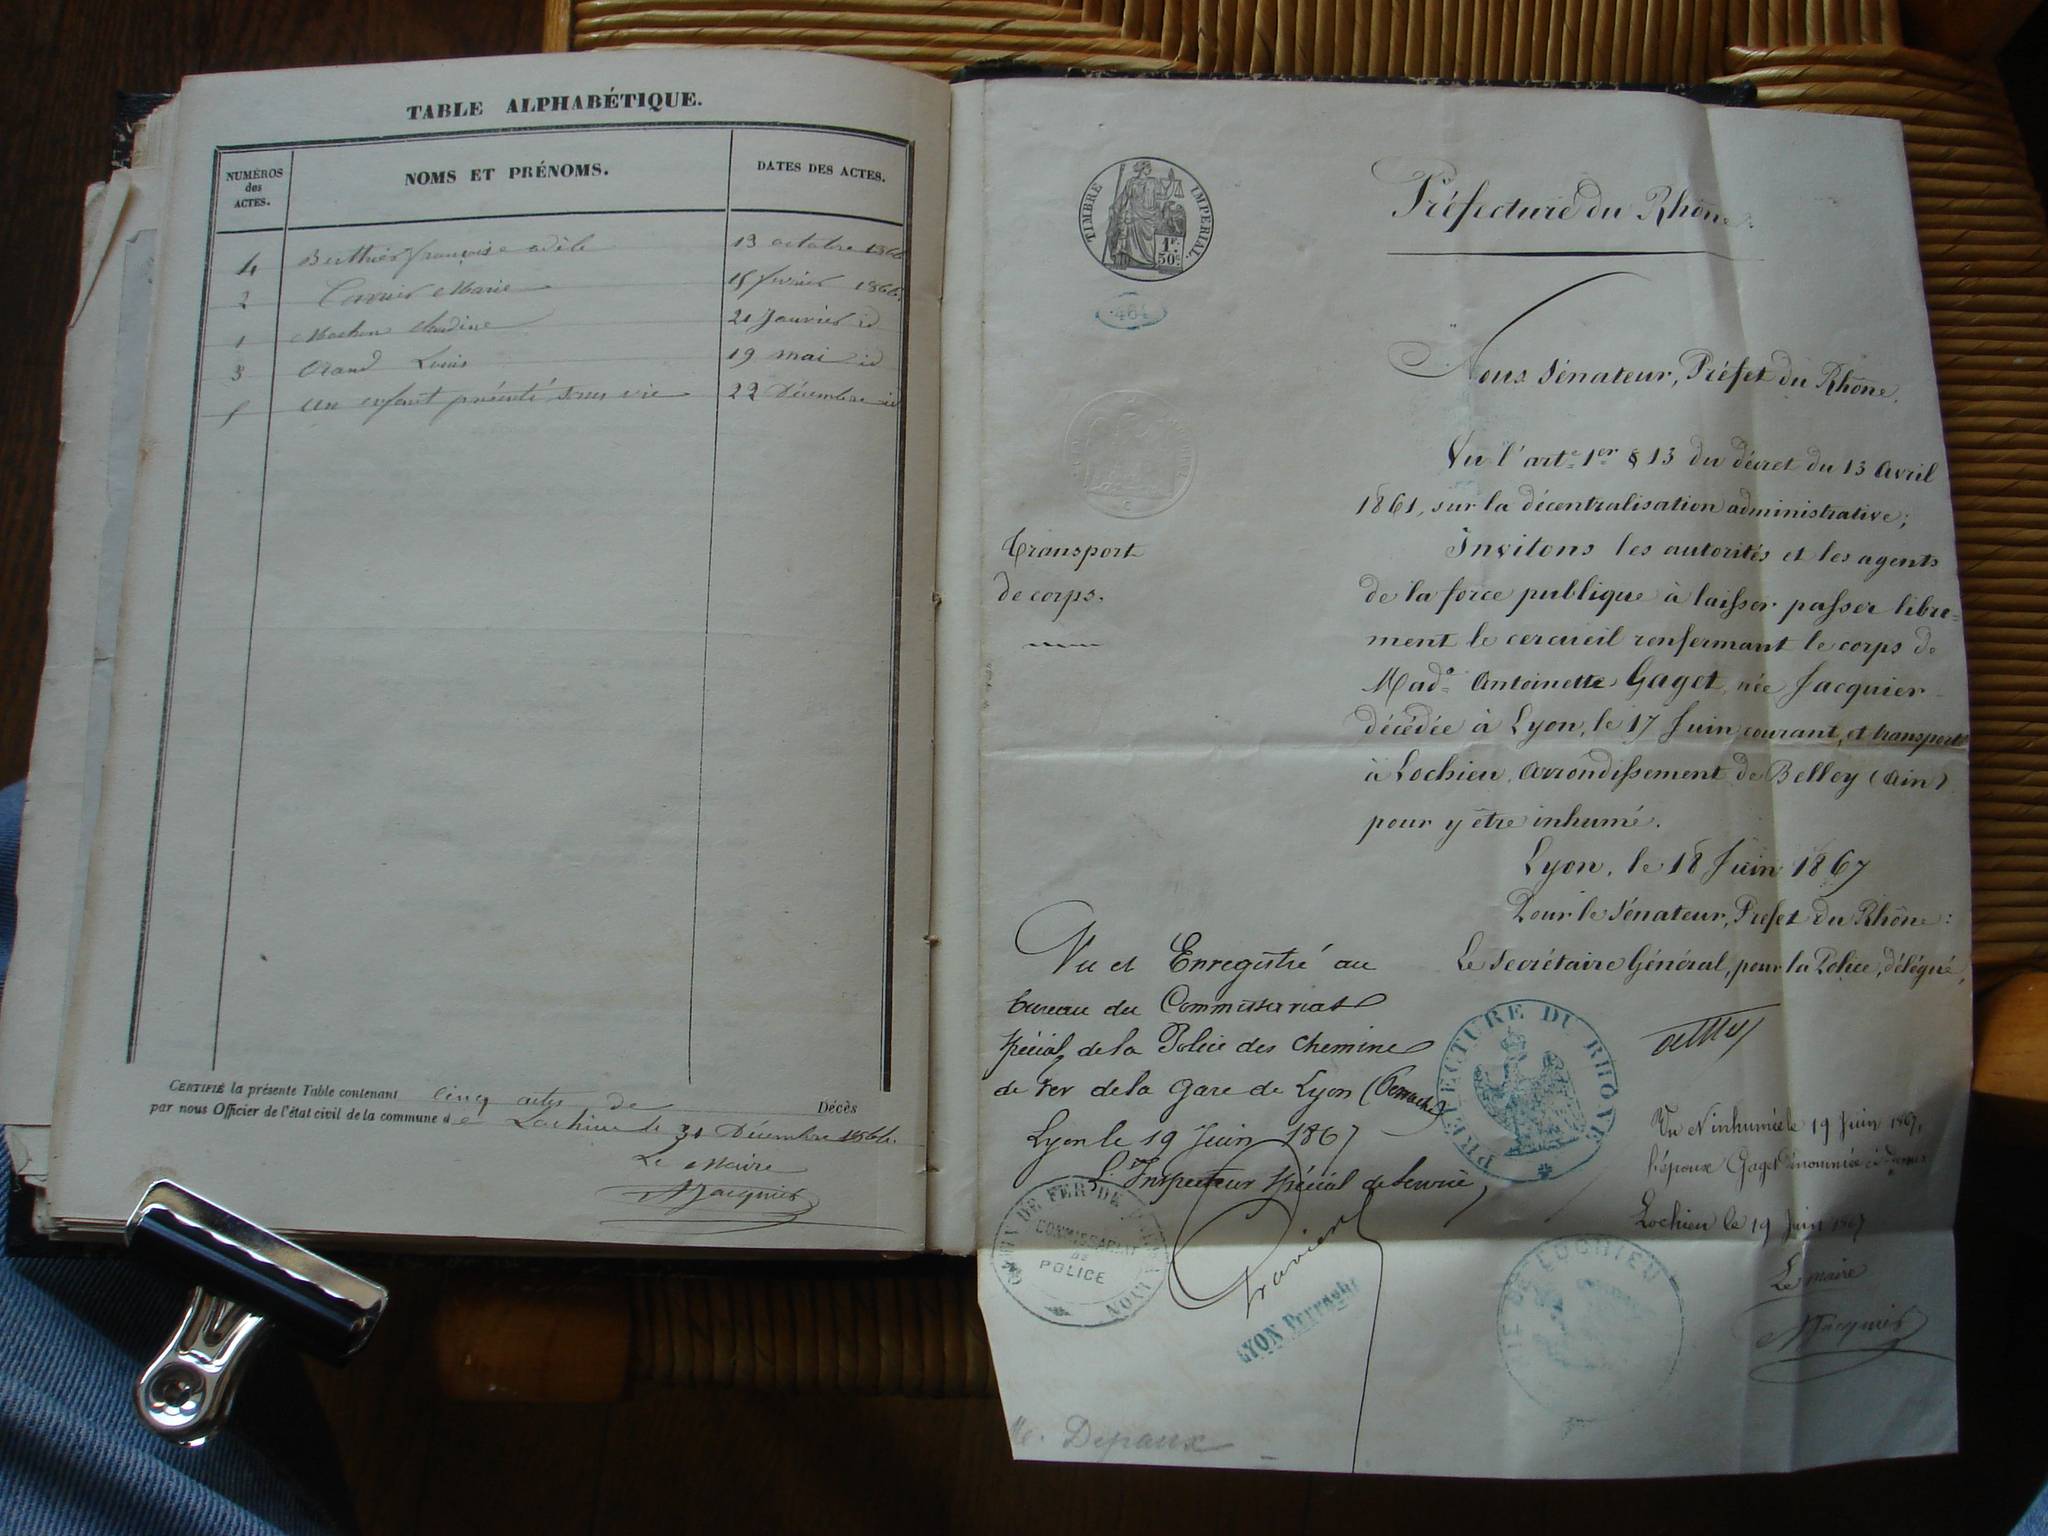 TABLE ALPHABÉTIQUE.
NUMÉROS
des
ACTES.
NOMS ET PRÉNOMS.
DATES DES ACTES.
4 Berthier françoise adèle 13 octobre 1866
2 Marie 15 février 1866
1 Claudine 21 Janvier id
3 Louis 19 mai id
5 un enfant présenté sans vie 22 Décembre id
CERTIFIÉ la présente Table contenant cinq actes de Décès
par nous Officier de l'état civil de la commune de Lochieu le 31 Décembre 1866.
Le Maire
Jacquier
TIMBRE IMPERIAL.
1F.
50C.
461
Préfecture du Rhône.
Nous Sénateur, Préfet du Rhône,
Vu l'arte. 1er § 13 du décret du 13 Avril
1861, sur la décentralisation administrative;
Transport
de corps.
Invitons les autorités et les agents
de la force publique à laisser passer libre-
ment le cercueil renfermant le corps de
Made. Antoinette Gaget, née Jacquier
décédée à Lyon, le 17 Juin courant, et transporté
à Lochieu, Arrondissement de Belley (Ain)
pour y être inhumé.
Lyon, le 18 Juin 1867
Pour le Sénateur, Préfet du Rhône:
Le Secrétaire Général, pour la Police, délégué,
PREFECTURE DU RHÔNE
Vu et Enregistré au
bureau du Commissariat
spécial de la Police des chemins
de fer de la gare de Lyon (Perrache)
Lyon le 19 Juin 1867
L'Inspecteur spécial de service,
CHEMIN DE FER DE LYON
COMMISSARIAT
DE
POLICE
LYON Perrache
Vu et inhumée le 19 Juin 1867,
l'épouse Gaget dénommée ci-dessus
Lochieu le 19 Juin 1867
Le maire
Jacquier
DE LOCHIEU
Depaux